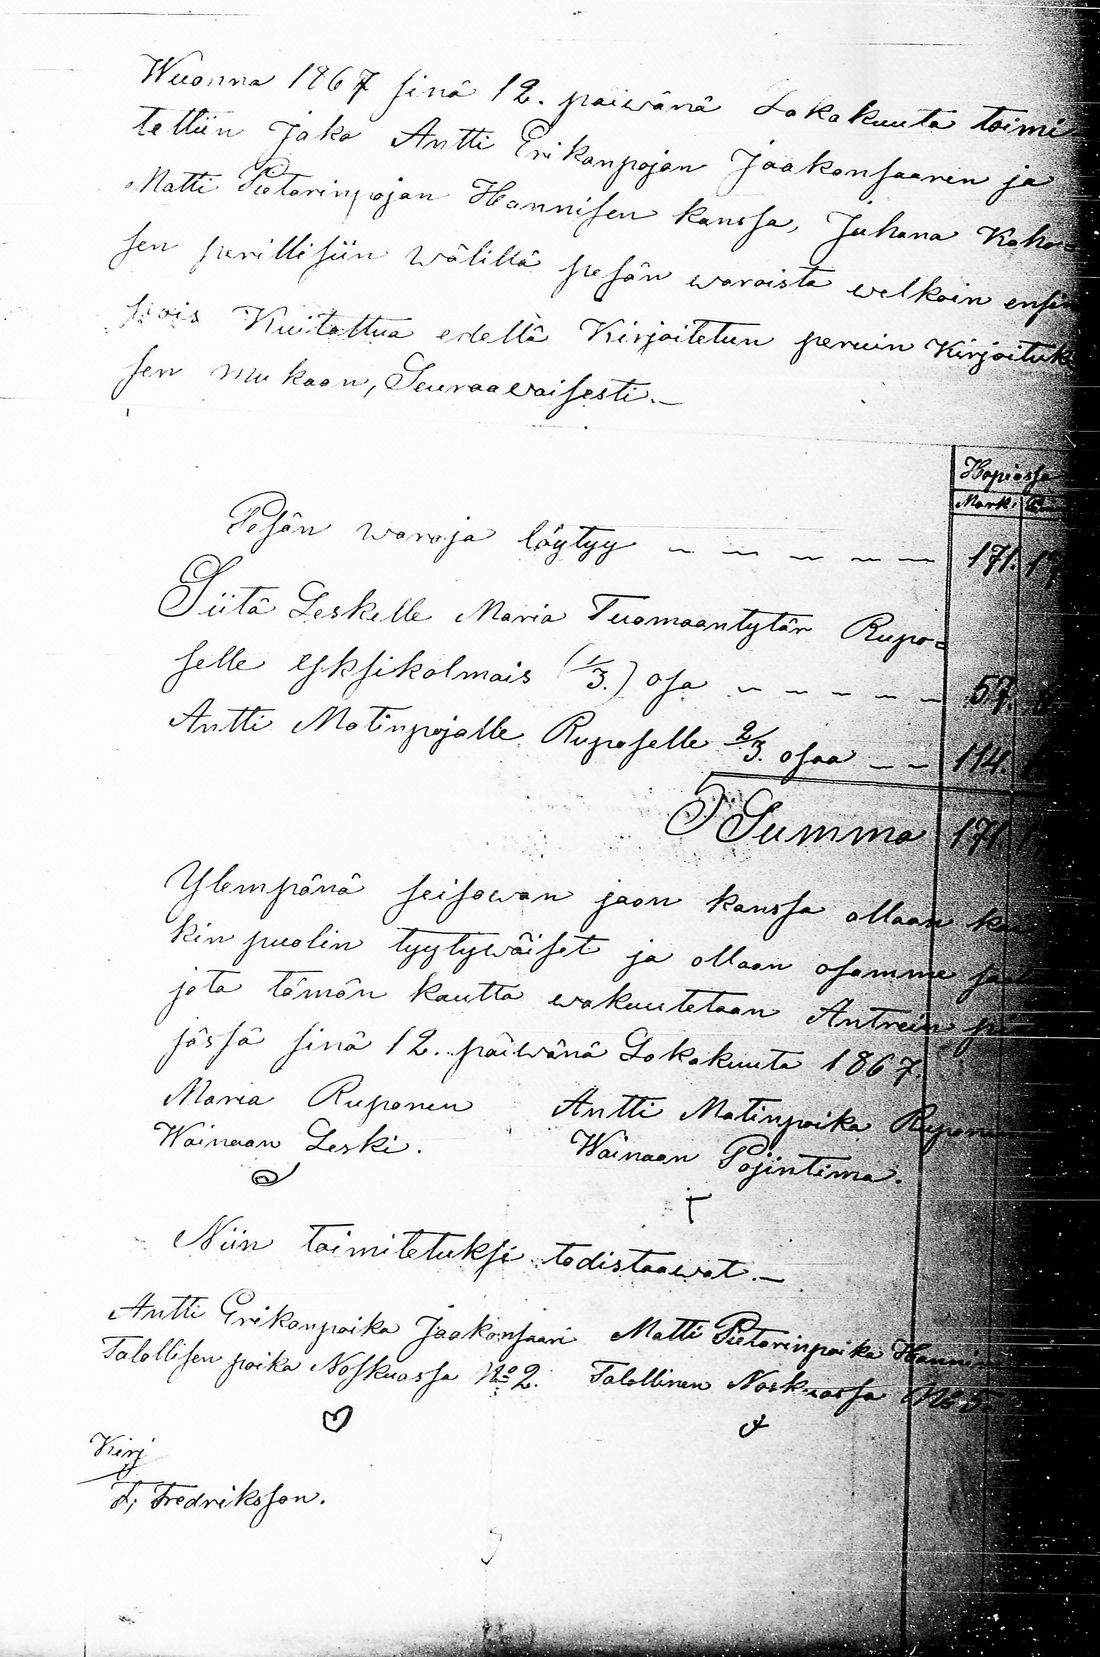 Wuonna 1867 sinä 12. päiwänä Lokakuuta toimi
tettiin Jako Antti Erikanpojan Jaakonsaaren ja
Matti Pietarinpojan Hannisen kanssa, Juhana Koho=
sen perillisiin wälillä pesän waroista welkain ensin
pois Kuitattua edellä Kirjoitetun peruin Kirjoituk
sen mukaan, Seuraawaisesti.—
Hopiassa
Mark.
Pesän waroja löytyy — — — — — 171. 17
Siitä Leskelle Maria Tuomaantytär Rupo=
selle yksikolmais (1/3.) osa — — — — — 57.
Antti Matinpojalle Ruposelle 2/3. osaa — — 114.
Summa 171. 17
Ylempänä seisowan jaon kanssa ollaan
kin puolin tyytywäiset ja ollaan osamme
jota tämän kautta wakuutetaan Antrein pi
jässä sinä 12. päiwänä Lokakuuta 1867.
Maria Ruponen Antti Matinpoika Ruponen
Wainaan Leski. Wainaan Pojintima.
Niin toimitetuksi todistaawat.—
Antti Erikanpoika Jaakonsaari Matti Pietarinpoika Hanninen
Talollisen poika Noskuassa No 2. Talollinen Noskuassa No 5.
Kirj
F. Fredriksson.